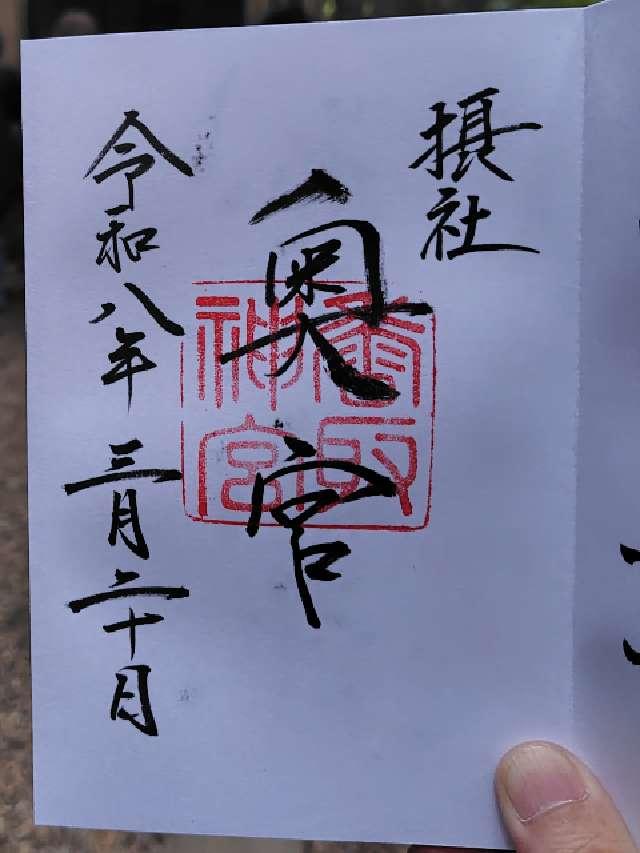 摂社
奥宮
香取
神宮
令和八年三月二十日